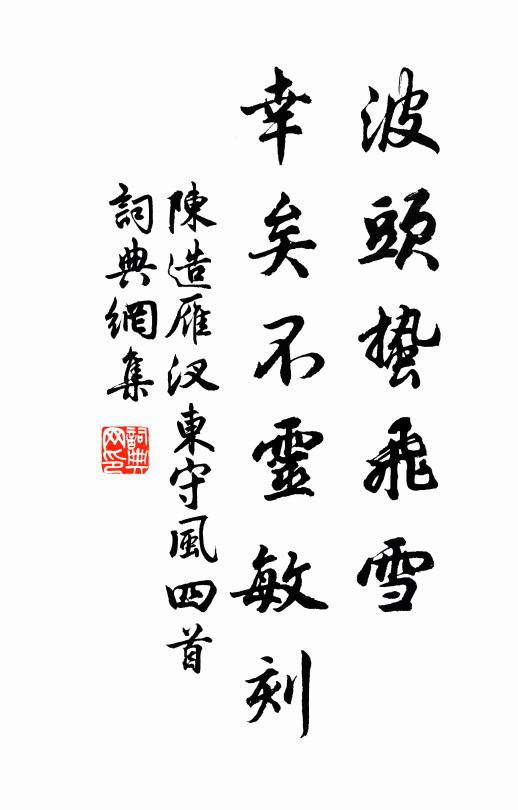 波頭蟄飛雪
幸矣不靈敏刻
陳造雁汊東守風四首
詞典網集
詞典
网印